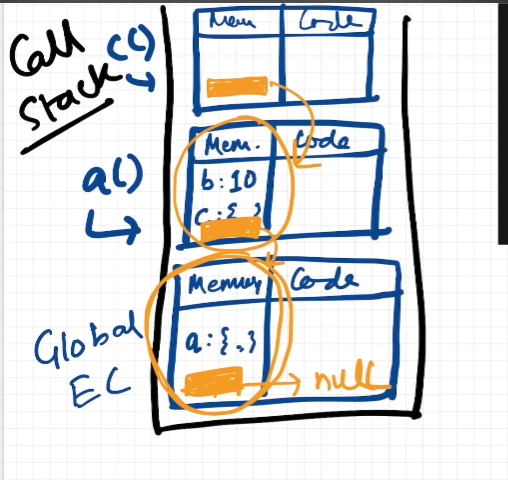 Call
Stack
c()
Mem Code
a()
Mem. Code
b:10
c:{ }
Global
EC
Memory Code
a:{.}
null